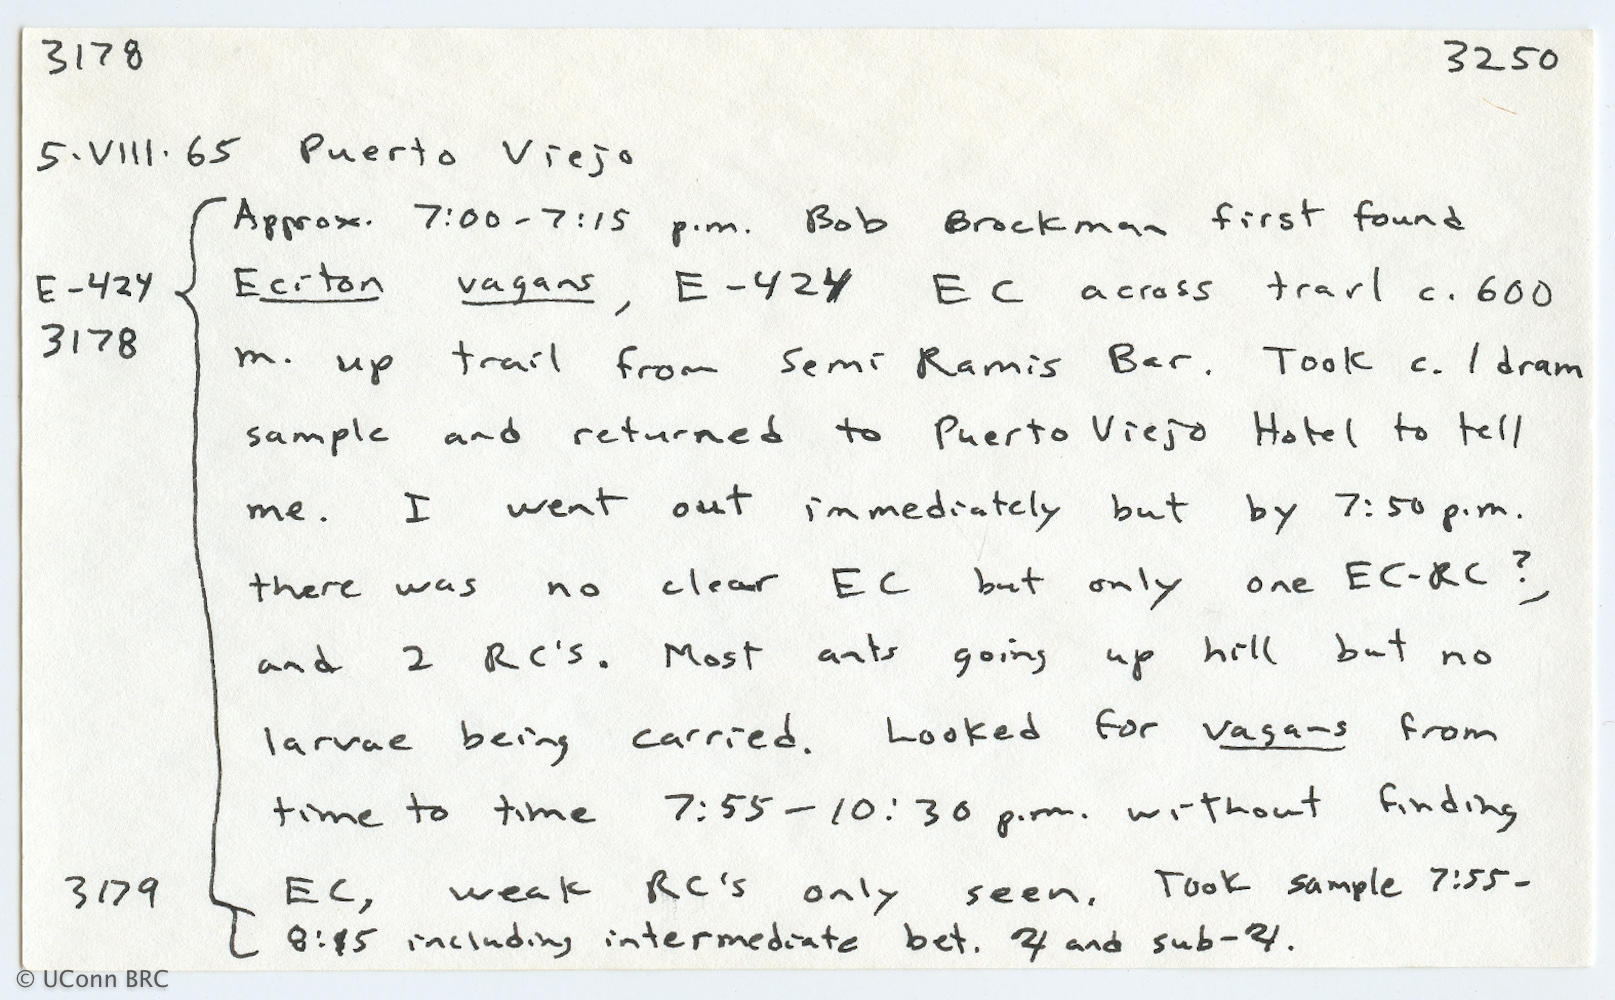 3178 3250
5.VIII.65 Puerto Viejo
Approx. 7:00-7:15 p.m. Bob Brockman first found
E-424 Eciton vagans, E-424 EC across trail c. 600
3178 m. up trail from Semi Ramis Bar. Took c. 1 dram
sample and returned to Puerto Viejo Hotel to tell
me. I went out immediately but by 7:50 p.m.
there was no clear EC but only one EC-RC?,
and 2 RC's. Most ants going up hill but no
larvae being carried. Looked for vagans from
time to time 7:55-10:30 p.m. without finding
3179 EC, weak RC's only seen. Took sample 7:55-
8:15 including intermediate bet. ♃ and sub-♃.
© UConn BRC